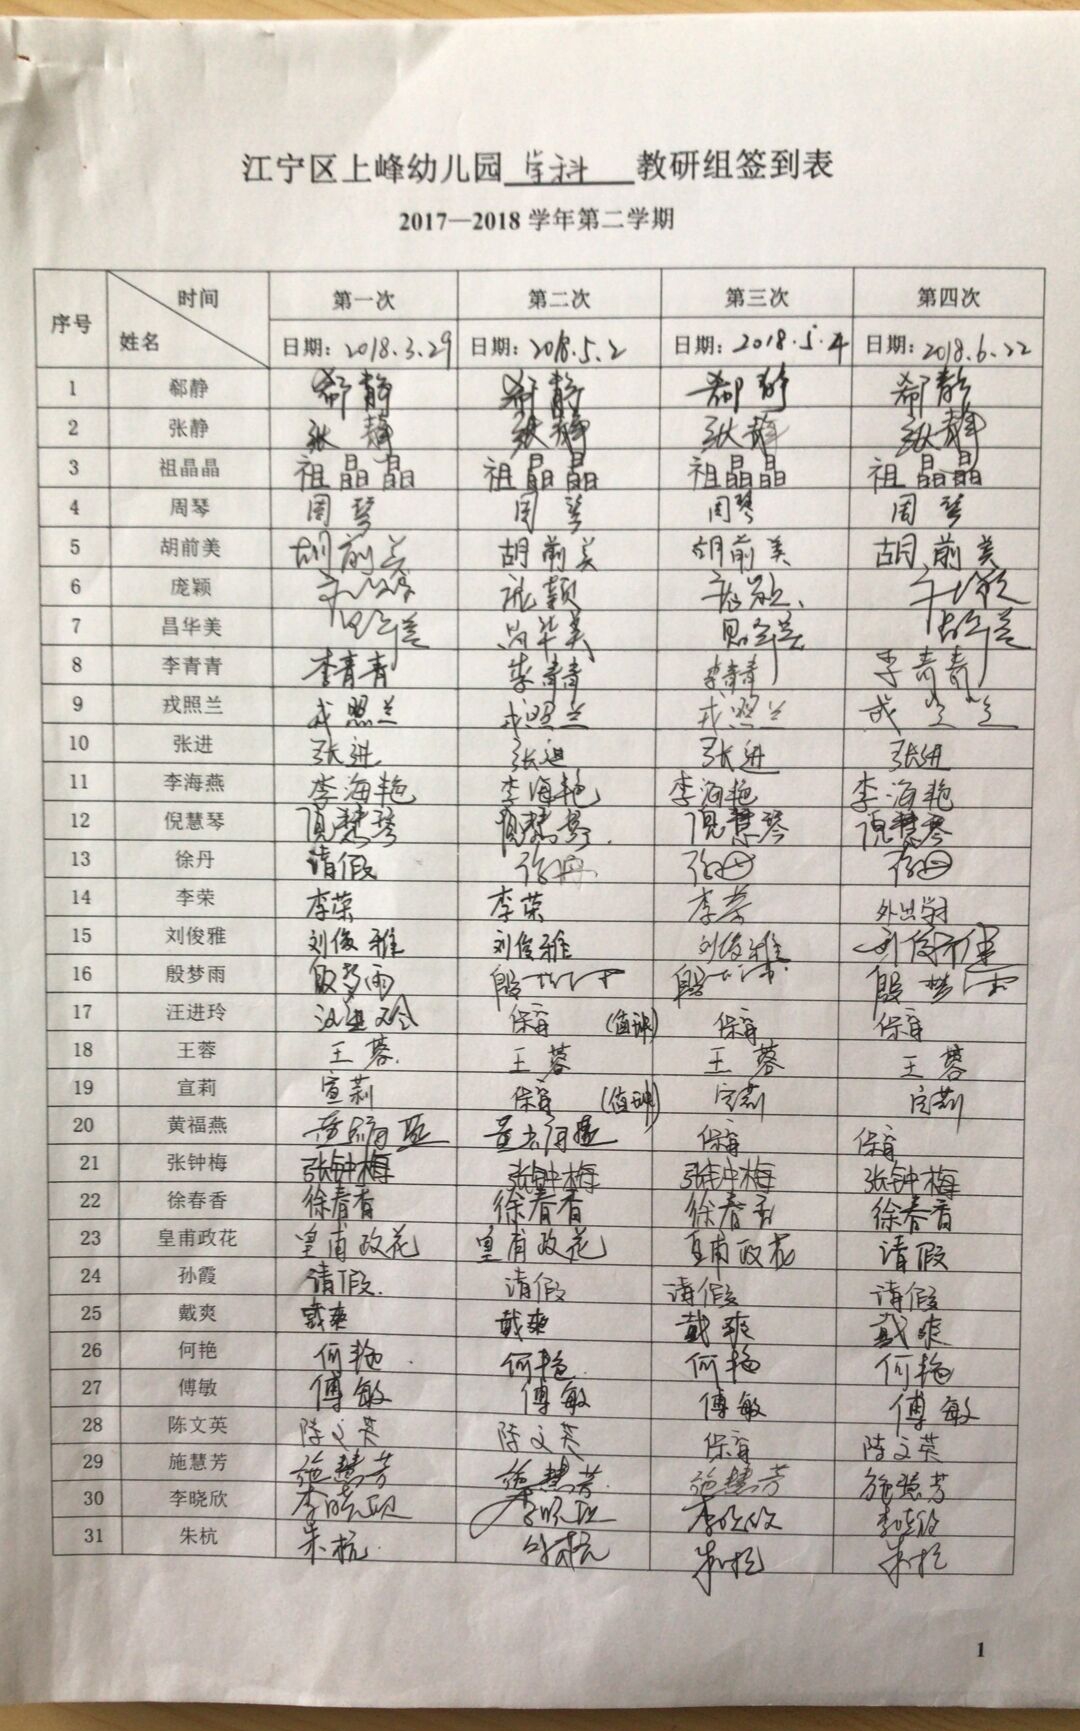 江宁区上峰幼儿园 学科 教研组签到表
2017—2018 学年第二学期
序号 时间 姓名 第一次 第二次 第三次 第四次
日期: 2018.3.29 日期: 2018.5.2 日期: 2018.5.4 日期: 2018.6.22
1 郗静 郗静 郗静 郗静 郗静
2 张静 张静 张静 张静 张静
3 祖晶晶 祖晶晶 祖晶晶 祖晶晶 祖晶晶
4 周琴 周琴 周琴 周琴 周琴
5 胡前美 胡前美 胡前美 胡前美 胡前美
6 庞颖 庞颖
7 昌华美 昌华美
8 李青青 李青青 李青青 李青青 李青青
9 戎照兰 戎照兰 戎照兰 戎照兰
10 张进 张进 张进 张进 张进
11 李海燕 李海艳 李海艳 李海艳 李海艳
12 倪慧琴 倪慧琴 倪慧琴 倪慧琴 倪慧琴
13 徐丹 请假 徐丹 徐丹 徐丹
14 李荣 李荣 李荣 李荣 外出学习
15 刘俊雅 刘俊雅 刘俊雅 刘俊雅
16 殷梦雨 殷梦雨 殷 殷 殷梦雨
17 汪进玲 汪进玲 保育 保育 保育
18 王蓉 王蓉. 王蓉 王蓉 王蓉
19 宣莉 宣莉 保育 宣莉 宣莉
20 黄福燕 保育 保育
21 张钟梅 张钟梅 张钟梅 张钟梅 张钟梅
22 徐春香 徐春香 徐春香 徐春香 徐春香
23 皇甫政花 皇甫政花 皇甫政花 皇甫政花 请假
24 孙霞 请假. 请假 请假 请假
25 戴爽 戴爽 戴爽 戴爽 戴爽
26 何艳 何艳 何艳 何艳 何艳
27 傅敏 傅敏 傅敏 傅敏 傅敏
28 陈文英 陈文英 陈文英 保育 陈文英
29 施慧芳 施慧芳 施慧芳 施慧芳 施慧芳
30 李晓欣 李晓欣 李晓欣 李晓欣 李晓欣
31 朱杭 朱杭 朱杭 朱杭 朱杭
1